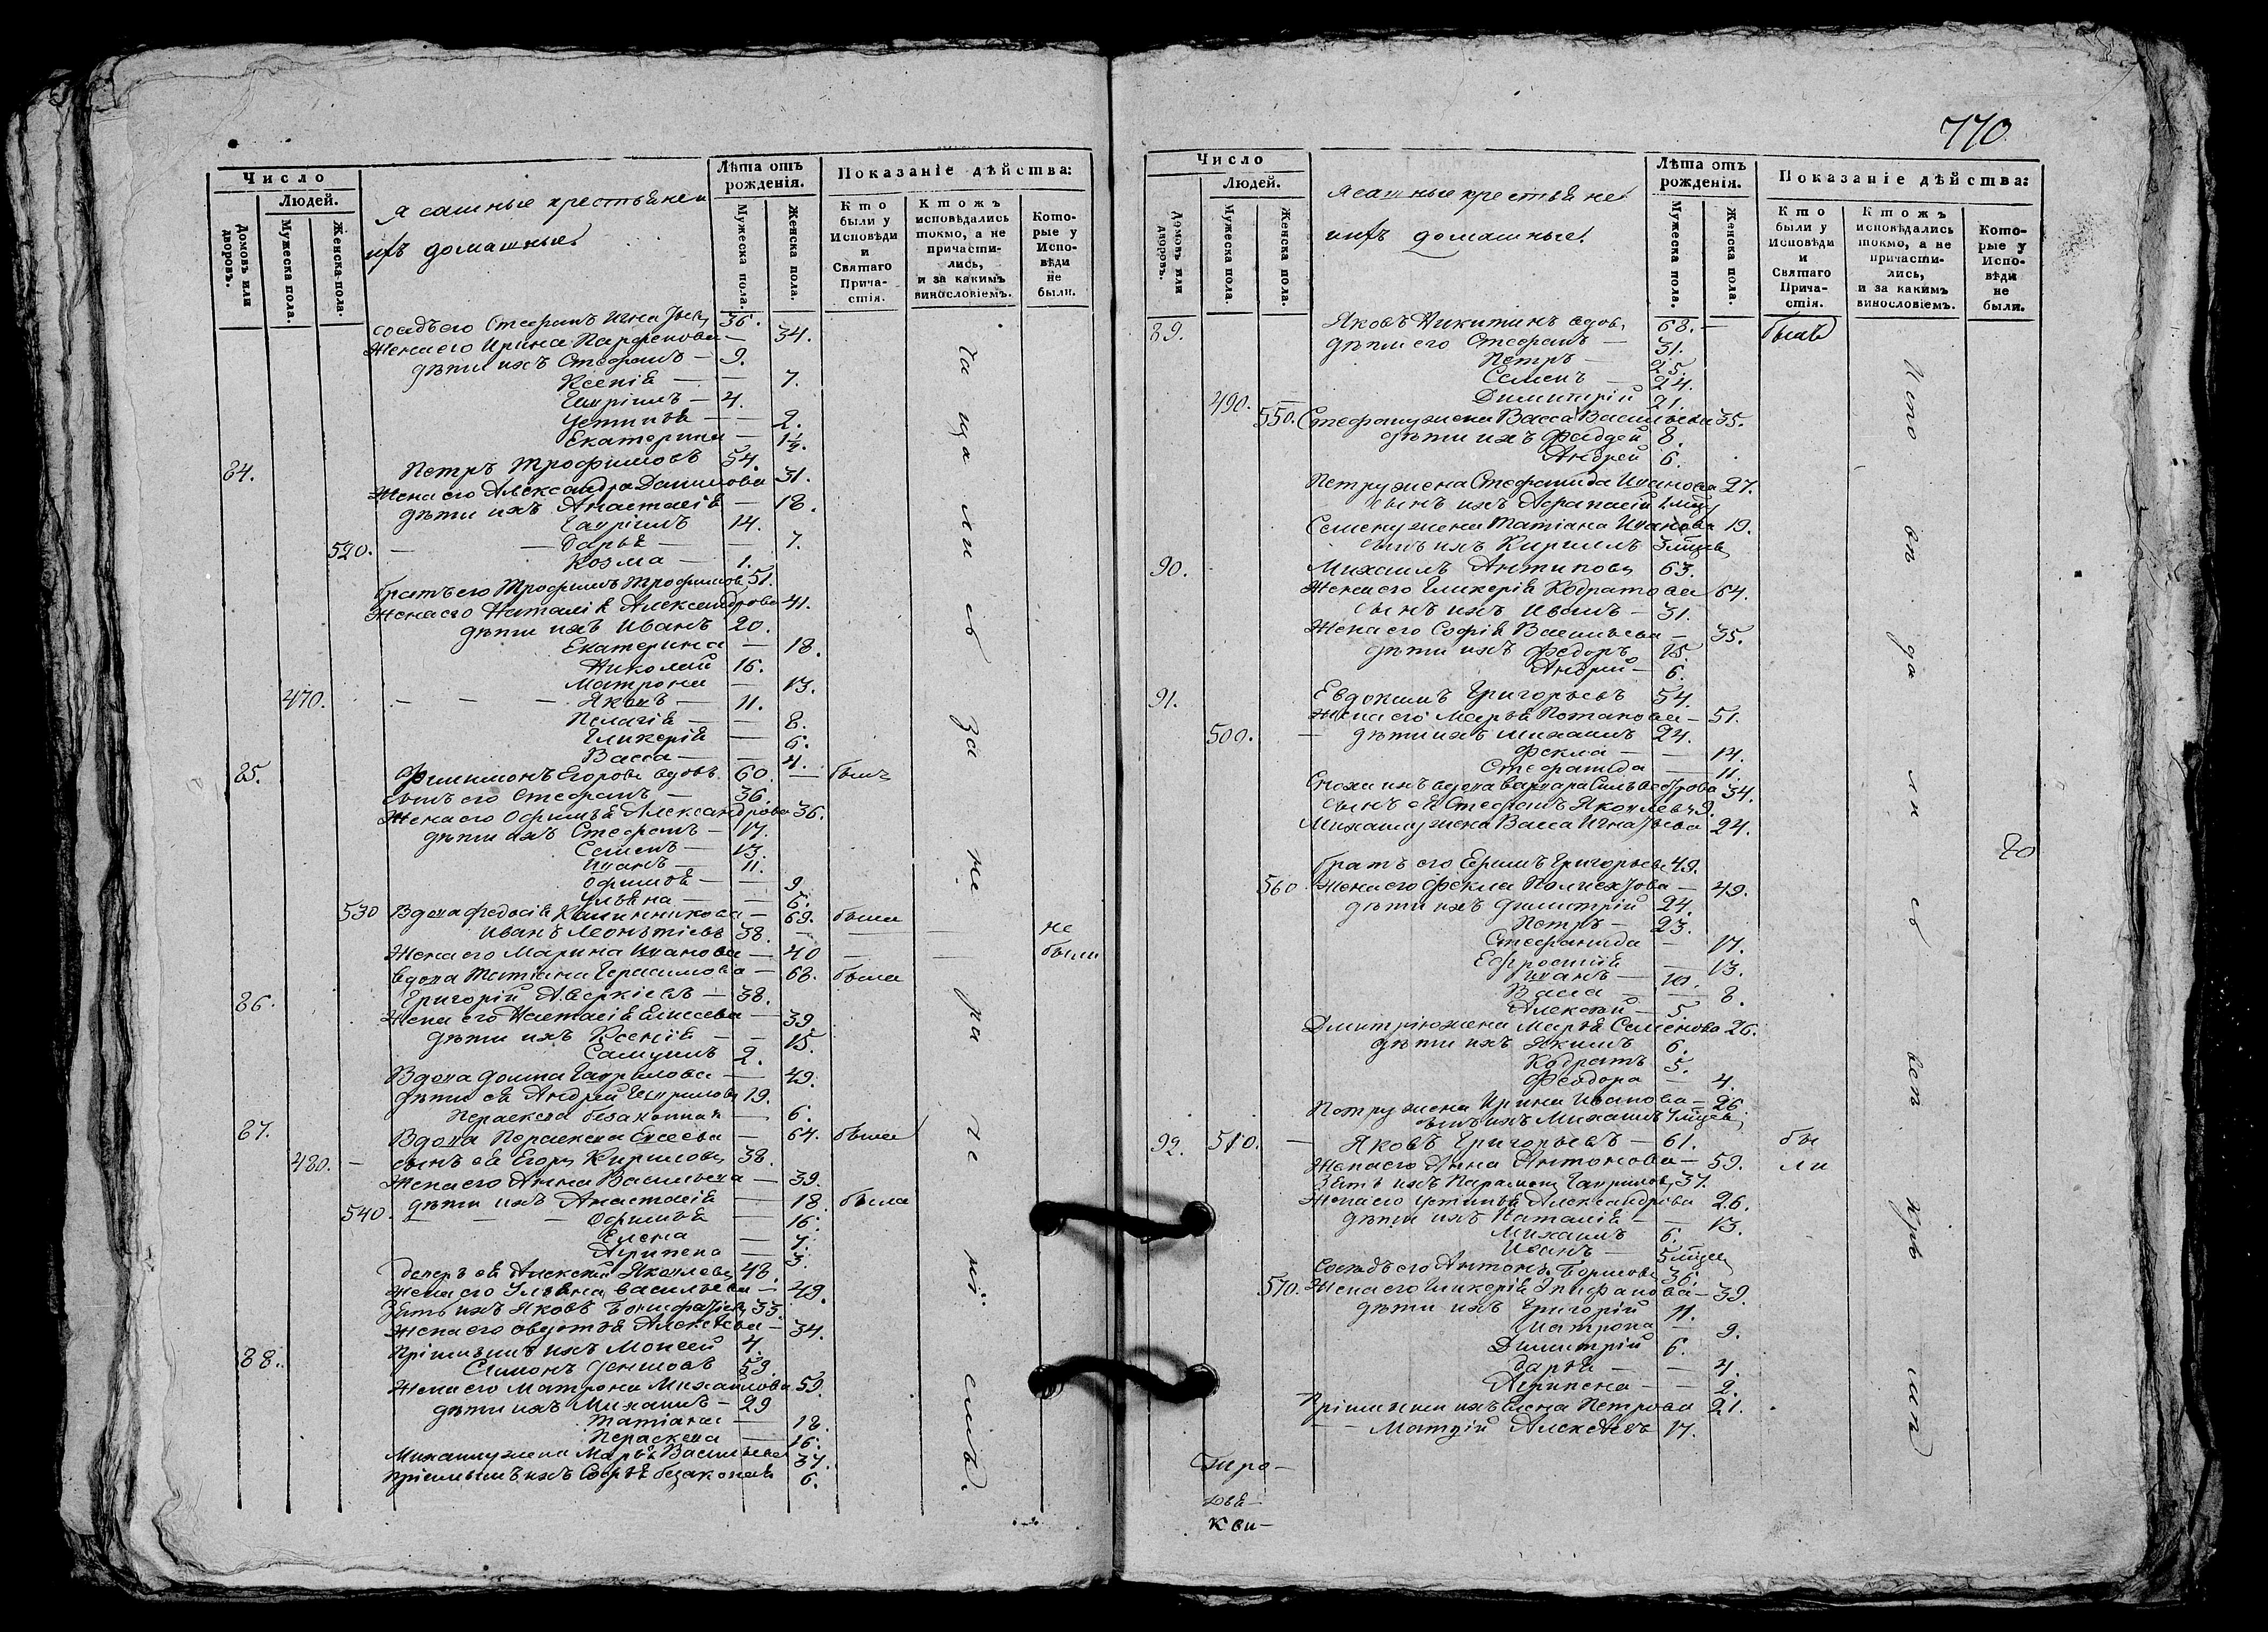 Число
Людей.
Домовъ или дворовъ.
Мужеска пола.
Женска пола.
ясашные крестьяне и
ихъ домашные
Лѣта отъ рождения.
Мужеска пола.
Женска пола.
Показаніе дѣйства:
Кто были у Исповѣди и Святаго Прича-стія.
Ктожъ исповѣдались токмо, а не причасти-лись, и за какимъ винословіемъ.
Кото-рые у Испо-вѣди не были.
сосѣдъ его Стефанъ 36.
Жена его Ирина Парфенова — 34.
дѣти ихъ Стефанъ — 9.
Ксенія — — 7.
Гавріилъ — 4.
Устинья — — 2.
Екатерина — 1½.
84. Петръ Трофимовъ 54.
Жена его Александра Данилова 31.
дѣти ихъ Анастасія — 18.
Гавріилъ 14.
520. — — Дарья — — 7.
Козма — 1.
братъ его Трофимъ Трофимов 51.
Жена его Наталія Александрова 41.
дѣти ихъ Иванъ 20.
Екатерина — 18.
Николай 16.
Матрона — 13.
470. — — — Яковъ — 11.
Пелагія — — 8.
Гликерія — — 6.
Васса — — 4.
85. Филимонъ Егоровъ вдовъ. 60. — былъ
сынъ его Стефанъ — 36.
Жена его Офимья Александрова 36.
дѣти ихъ Стефанъ — 17.
Семенъ — 13.
Иванъ — 11.
Офимья — — 9.
Ульяна — — 6.
530 Вдова Федосія Калинникова — 69. была
Иванъ Леонтіевъ 38. — — — не
Жена его Марина Иванова — 40 — — были
вдова Татіана Герасимова — 68. была
86. Григорій Аверкіевъ — 38.
Жена его Настасія Елисеева — 39.
дѣти ихъ Ксенія — — 15.
Самуилъ 2.
Вдова Домна Гаврилова — 49.
дѣти ея Андрей Гаврилов 19.
Параскева безаконная — 6.
87. Вдова Параскева Елисеева — 64. была
480. — сынъ ея Егоръ Кириловъ 38.
Жена его Анна Васильева — 39.
дѣти ихъ Анастасія — 18. была
540. — — — Офимья — 16.
Елена — 7.
Агрипена — 3.
деверъ ея Алексѣй Яковлевъ 48.
Жена его Ульяна Васильева — 49.
Зять ихъ Яковъ 33.
Жена его Авдотья Алексѣева — 34.
пріимышъ ихъ Моисей 4.
88. Симонъ Денисовъ 59.
Жена его Матрона Михайлова 59.
дѣти ихъ Михаилъ — 29
Татіана — 18.
Параскева — 16.
Михаилу жена Марья Васильева 37.
пріимышъ ихъ Софья безаконная 6.
за не
770.
Число
Людей.
Домовъ или дворовъ.
Мужеска пола.
Женска пола.
Ясашные крестьяне
ихъ домашные.
Лѣта отъ рожденія.
Мужеска пола.
Женска пола.
Показаніе дѣйства:
Кто были у Исповѣди и Святаго Прича-стія.
Ктожъ исповѣдались токмо, а не причасти-лись, и за какимъ винословіемъ.
Кото-рые у Испо-вѣди не были.
89. Яковъ Никитинъ вдов. 68. — былъ
дѣти его Стефанъ — 31.
Петръ — 25.
Семенъ — 24.
490. — Димитрій 21.
550. Стефану жена Васса Васильева 35.
дѣти ихъ Фаддей 8.
Андрей 6.
Петру жена Стефанида Иванова 27.
сынъ ихъ Афанасій
Семену жена Татіана Иванова 19.
сынъ ихъ Кирилъ 3 мѣсец.
90. Михаилъ Антиповъ 63.
Жена его Гликерія Кодратова 64.
сынъ ихъ Иванъ — 31.
Жена его Софія Васильева — 35.
дѣти ихъ Федоръ 15.
Андрей — 6.
91. Евдокимъ Григорьевъ 54.
Жена его Марья Потапова — 51.
500. — дѣти ихъ Михаилъ 24.
Фекла — 14.
Стефанида — 11.
Сноха ихъ вдова Варвара 34.
сынъ ея Стефанъ Яковлевъ 9.
Михаилу жена Васса Игнатьева 24.
20
братъ его Ермилъ Григорьевъ 49.
560. Жена его Фекла — 49.
дѣти ихъ Димитрій 24.
Петръ — 23.
Стефанида — 17.
Ефросинія — 13.
Иванъ — 10.
Васса — — 8.
Алексѣй — 5.
Дмитрію жена Марья Семенова 26.
дѣти ихъ Якимъ 6.
Кодратъ 5.
Феодора — 4.
Петру жена Ирина Иванова — 26.
сынъ ихъ Михаилъ
92. 510. — Яковъ Григорьевъ — 61. бы
Жена его Анна Антонова — 59. ли
Зять ихъ Парамонъ Гавриловъ 37.
Жена его Устинья Александрова 26.
дѣти ихъ Наталія — — 13.
Михаилъ 6.
Иванъ — 5 мѣсец
Сосѣдъ его Антонъ Борисовъ 36.
570. Жена его Гликерія Епифанова — 39.
дѣти ихъ Григорій 11.
Матрона — 9.
Димитрій 6.
Дарья — — 4.
Агрипена — — 2.
пріимыши ихъ Елена Петрова 21.
— — Матвѣй Алексѣевъ 17.